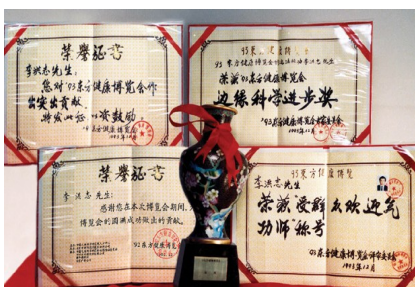 荣誉证书
李洪志先生：
您对'93东方健康博览会作
出突出贡献，
特发此证以资鼓励
'93东方健康博览会
'93东方健康博览会
荣获'93东方健康博览会
边缘科学进步奖
'93东方健康博览会评审委员会
1993年12月
荣誉证书
李洪志先生：
感谢您在本次博览会期间，
博览会的圆满成功做出的贡献。
'92东方健康博览会
'93东方健康博览
李洪志先生
荣获受群众欢迎气
功师称号
'93东方健康博览会评审委员会
1993年12月